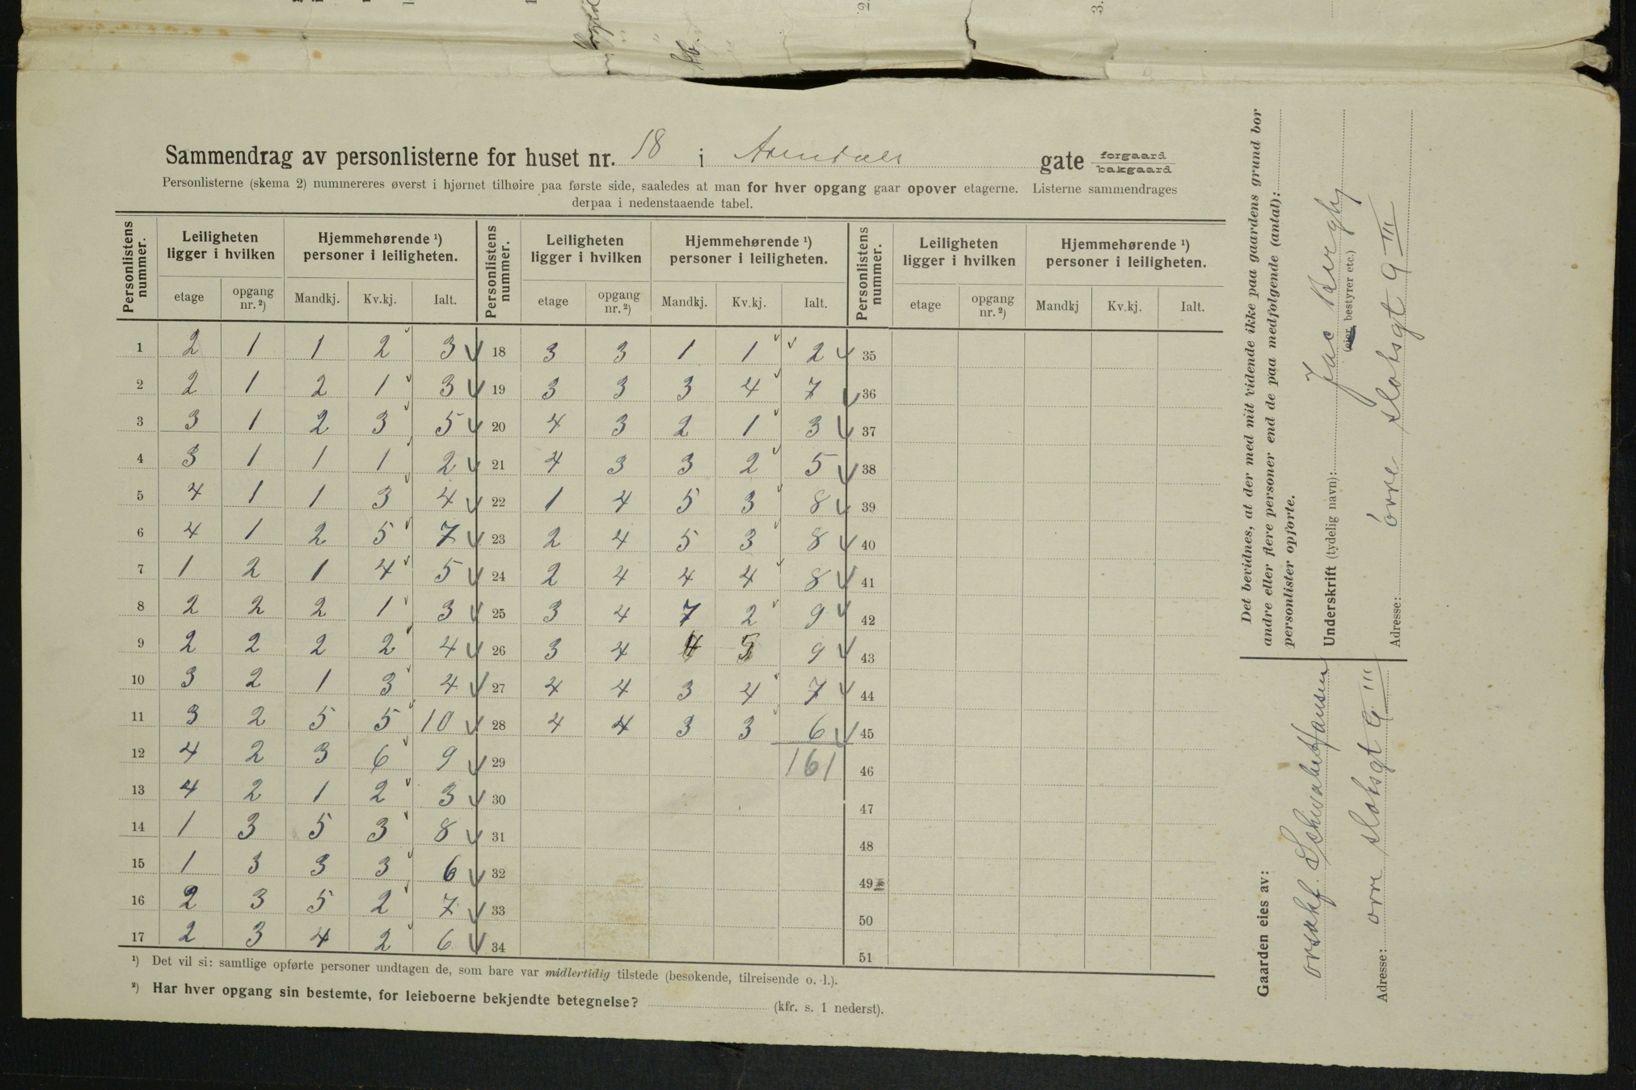 Sammendrag av personlisterne for huset nr. 18 i Arendals gate forgaard bakgaard
Personlisterne (skema 2) nummereres øverst i hjørnet tilhøire paa første side, saaledes at man for hver opgang gaar opover etagerne. Listerne sammendrages
derpaa i nedenstaaende tabel.
Personlistens nummer. Leiligheten ligger i hvilken Hjemmehørende ¹) personer i leiligheten. Personlistens nummer. Leiligheten ligger i hvilken Hjemmehørende ¹) personer i leiligheten. Personlistens nummer. Leiligheten ligger i hvilken Hjemmehørende ¹) personer i leiligheten.
etage opgang nr. ²) Mandkj. Kv.kj. Ialt. etage opgang nr. ²) Mandkj. Kv.kj. Ialt. etage opgang nr. ²) Mandkj Kv.kj. Ialt.
1 2 1 1 2 3 18 3 3 1 1 2 35
2 2 1 2 1 3 19 3 3 3 4 7 36
3 3 1 2 3 5 20 4 3 2 1 3 37
4 3 1 1 1 2 21 4 3 3 2 5 38
5 4 1 1 3 4 22 1 4 5 3 8 39
6 4 1 2 5 7 23 2 4 5 3 8 40
7 1 2 1 4 5 24 2 4 4 4 8 41
8 2 2 2 1 3 25 3 4 7 2 9 42
9 2 2 2 2 4 26 3 4 4 5 9 43
10 3 2 1 3 4 27 4 4 3 4 7 44
11 3 2 5 5 10 28 4 4 3 3 6 45
12 4 2 3 6 9 29 161 46
13 4 2 1 2 3 30 47
14 1 3 5 3 8 31 48
15 1 3 3 3 6 32 49
16 2 3 5 2 7 33 50
17 2 3 4 2 6 34 51
¹) Det vil si: samtlige opførte personer undtagen de, som bare var midlertidig tilstede (besøkende, tilreisende o. l.).
²) Har hver opgang sin bestemte, for leieboerne bekjendte betegnelse? (kfr. s. 1 nederst).
Det bevidnes, at der med mit vidende ikke paa gaardens grund bor
andre eller flere personer end de paa medfølgende (antal):
personlister opførte.
Underskrift (tydelig navn): Jac Bergby
(eier, bestyrer etc.)
Adresse: övre slotsgt 9 III
Gaarden eies av:
Schwabe Hansen
Adresse: övre slotsgt 9 III